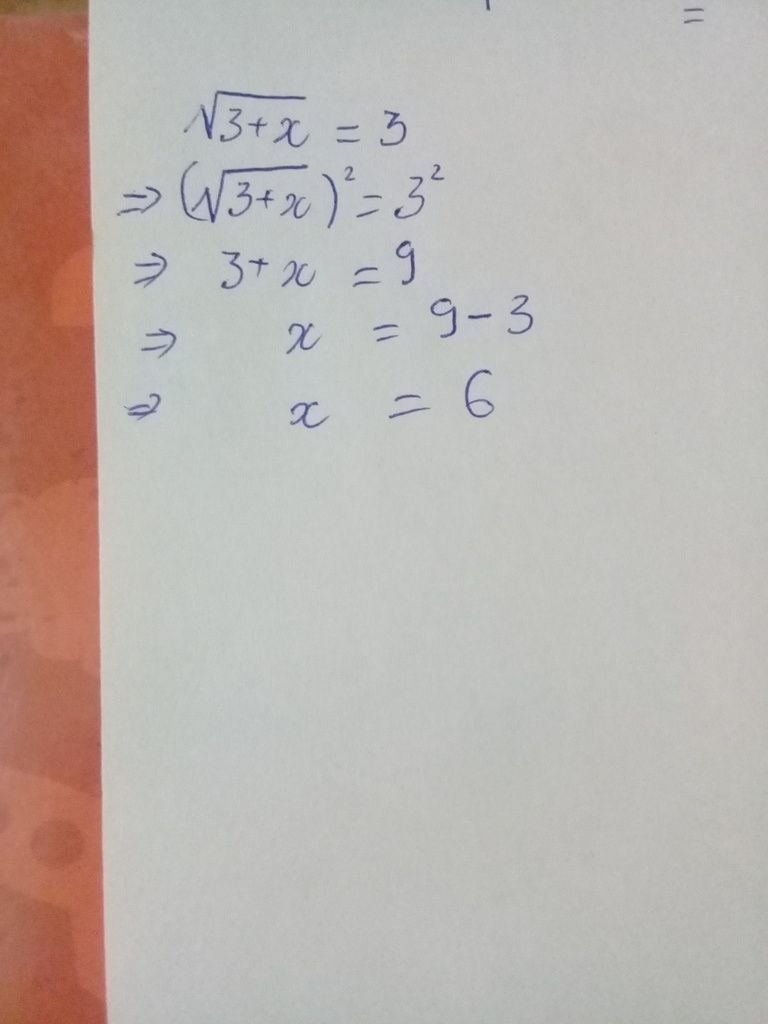 =
√(3+x) = 3
⇒ (√(3+x))² = 3²
⇒ 3+x = 9
⇒ x = 9-3
⇒ x = 6